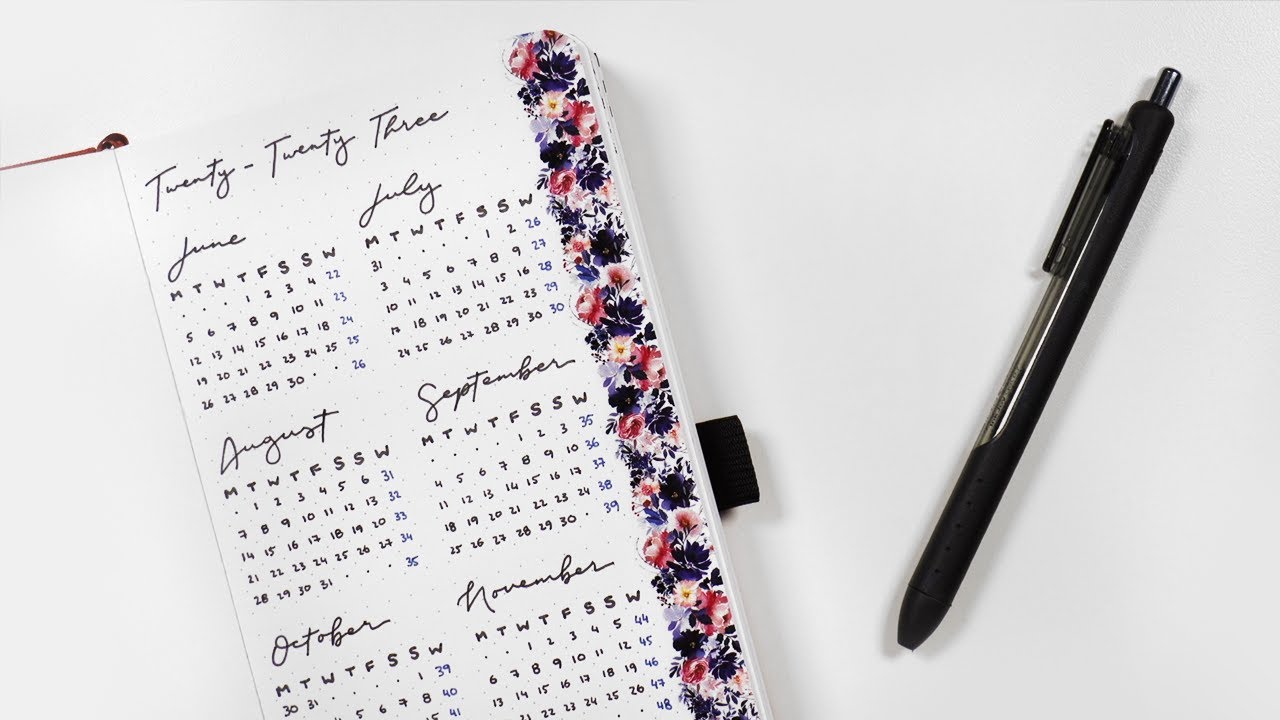 Twenty - Twenty Three
June
M T W T F S S W
· · · 1 2 3 4 22
5 6 7 8 9 10 11 23
12 13 14 15 16 17 18 24
19 20 21 22 23 24 25 25
26 27 28 29 30 · · 26
July
M T W T F S S W
31 · · · · 1 2 26
3 4 5 6 7 8 9 27
10 11 12 13 14 15 16 28
17 18 19 20 21 22 23 29
24 25 26 27 28 29 30 30
August
M T W T F S S W
· 1 2 3 4 5 6 31
7 8 9 10 11 12 13 32
14 15 16 17 18 19 20 33
21 22 23 24 25 26 27 34
28 29 30 31 · · · 35
September
M T W T F S S W
· · · · 1 2 3 35
4 5 6 7 8 9 10 36
11 12 13 14 15 16 17 37
18 19 20 21 22 23 24 38
25 26 27 28 29 30 · 39
October
M T W T F S S W
30 31 · · · · 1 39
40
41
November
M T W T F S S W
· · 1 2 3 4 5 44
6 7 8 9 10 11 12 45
13 14 15 16 17 18 19 46
23 24 25 26 47
48